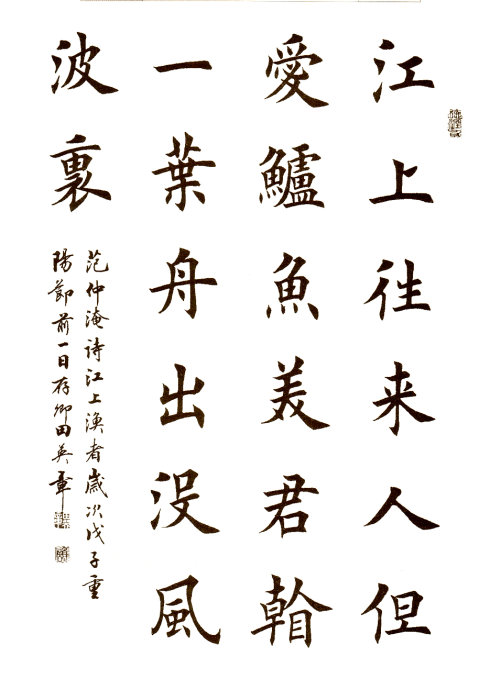 江上往来人但
愛鱸魚美君看
一葉舟出沒風
波裏
范仲淹诗江上漁者歲次戊子重
陽節前一日存卿田英章